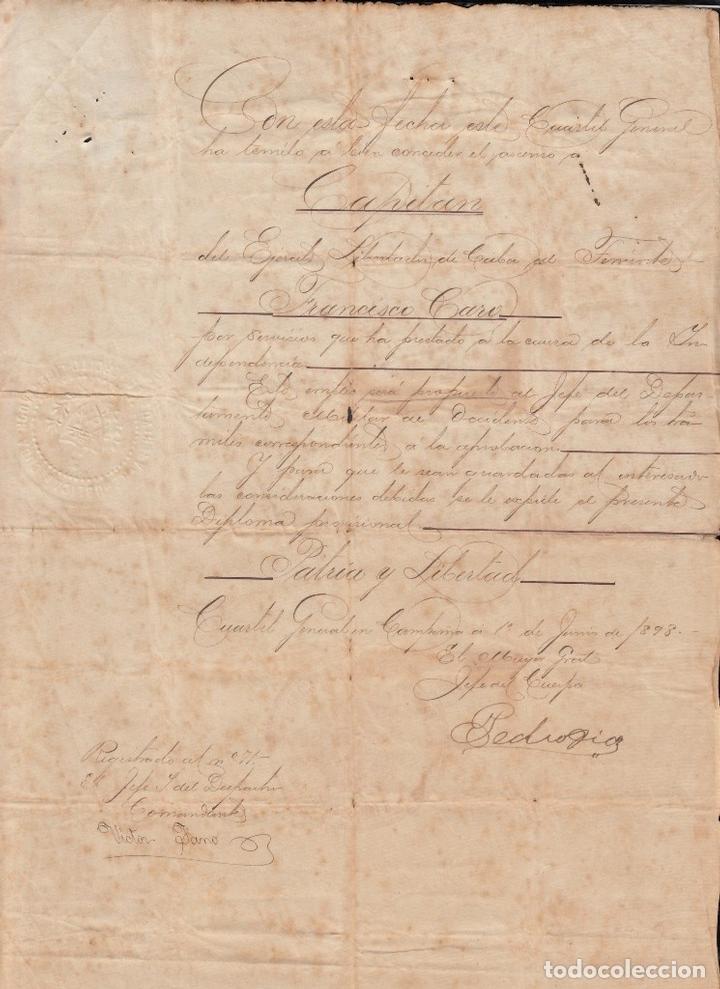 Con esta fecha este Cuartel General
ha tenido á bien conceder el ascenso a
Capitan
del Ejército Libertador de Cuba al Teniente
Francisco Caro
por servicios que ha prestado á la causa de la In
dependencia
Este empleo será propuesto al Jefe del Depar
tamento Militar de Occidente para los trá
mites correspondientes á la aprobacion
Y para que le sean guardadas al interesado
las consideraciones debidas se le expide el presente
Diploma provisional
Patria y Libertad
Cuartel General en Campaña á 1º de Junio de 1898.
El Mayor Gral
Jefe del Cuerpo
Pedro Dia
Registrado al nº 71
El Jefe del Despacho
Comandante
Victor Fano
todocoleccion